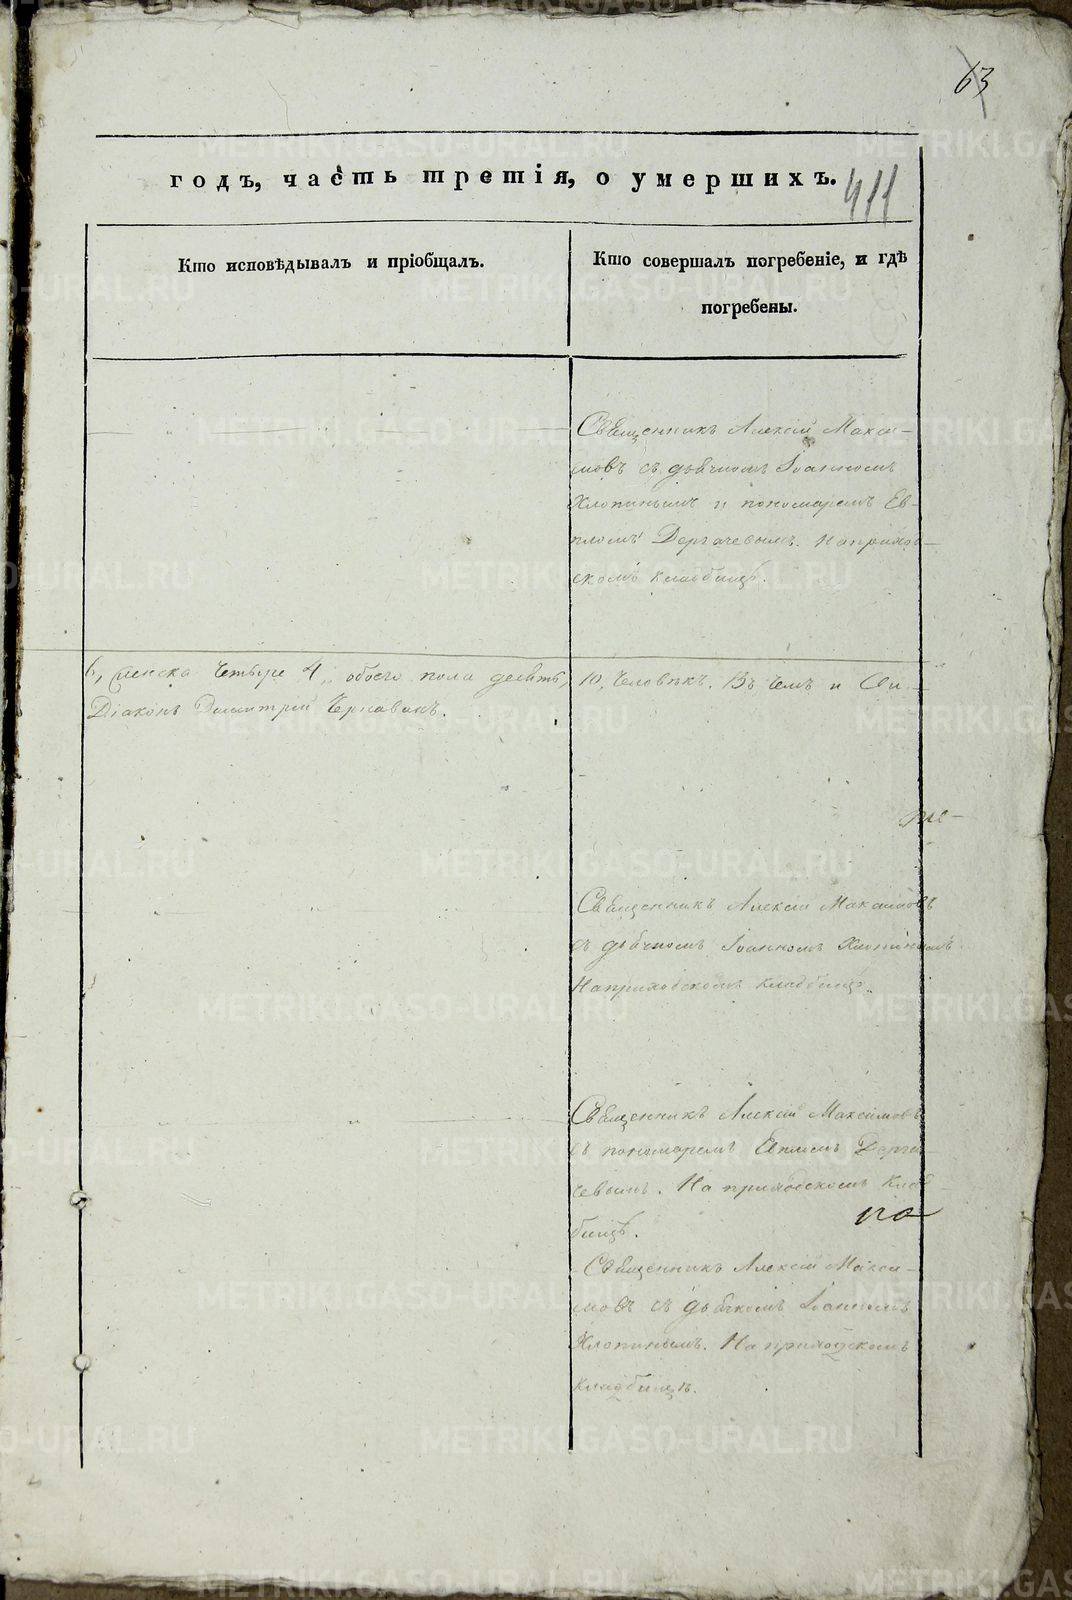 63
годъ, часть третія, о умершихъ.
411
Кто исповѣдывалъ и пріобщалъ.
Кто совершалъ погребеніе, и гдѣ
погребены.
Священникъ Алексій Макси-
мовъ съ дьячкомъ Іоанномъ
Хлопинымъ и пономаремъ Ев-
пломъ Дергачевымъ. На приход-
скомъ кладбищѣ.
6, женска четыре 4, обоего пола десять,
10, человѣкъ. Въ чемъ и Сви-
Діаконъ Димитрій
те-
Священникъ Алексій Максимовъ
съ дьячкомъ Іоанномъ Хлопинымъ
На приходскомъ кладбищѣ.
Священникъ Алексій Максимовъ
съ пономаремъ Евпломъ Дерга-
чевымъ. На приходскомъ клад-
по
бищѣ.
Священникъ Алексій Макси-
мовъ съ дьячкомъ Іоанномъ
Хлопинымъ. На приходскомъ
кладбищѣ.
METRIKI.GASO-URAL.RU